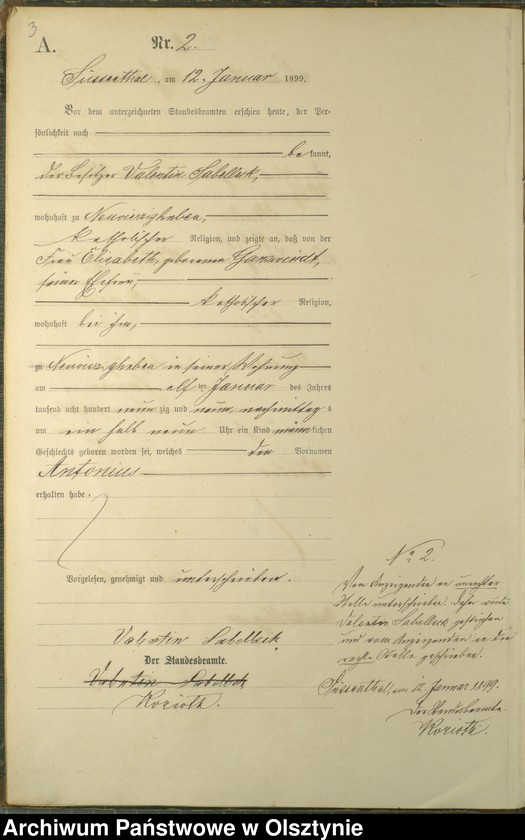 3
A.
Nr. 2.
Süssenthal, am 12. Januar 1899.
Vor dem unterzeichneten Standesbeamten erschien heute, der Per-
sönlichkeit nach
be kannt,
der Besitzer Valentin Sabellek,
wohnhaft zu Neuvierzighuben,
katholischer Religion, und zeigte an, daß von der
Frau Elisabeth, geborenen
seiner Ehefrau,
katholischer Religion,
wohnhaft bei ihm,
zu Neuvierzighuben in seiner Wohnung
am elf ten Januar des Jahres
tausend acht hundert neun zig und neun, nachmittag s
um ein halb neun Uhr ein Kind männ lichen
Geschlechts geboren worden sei, welches den Vornamen
Antonius
erhalten habe.
Vorgelesen, genehmigt und unterschrieben.
Valentin Sabelleck.
Der Standesbeamte.
Valentin Sabelleck
Korioth.
No 2.
Vom Anzeigenden an unrechter
Stelle unterschrieben. Daher wurde
Valentin Sabelleck gestrichen
und vom Anzeigenden an die
rechte Stelle geschrieben.
Süssenthal, am 12. Januar 1899.
Der Standesbeamte.
Korioth.
Archiwum Państwowe w Olsztynie